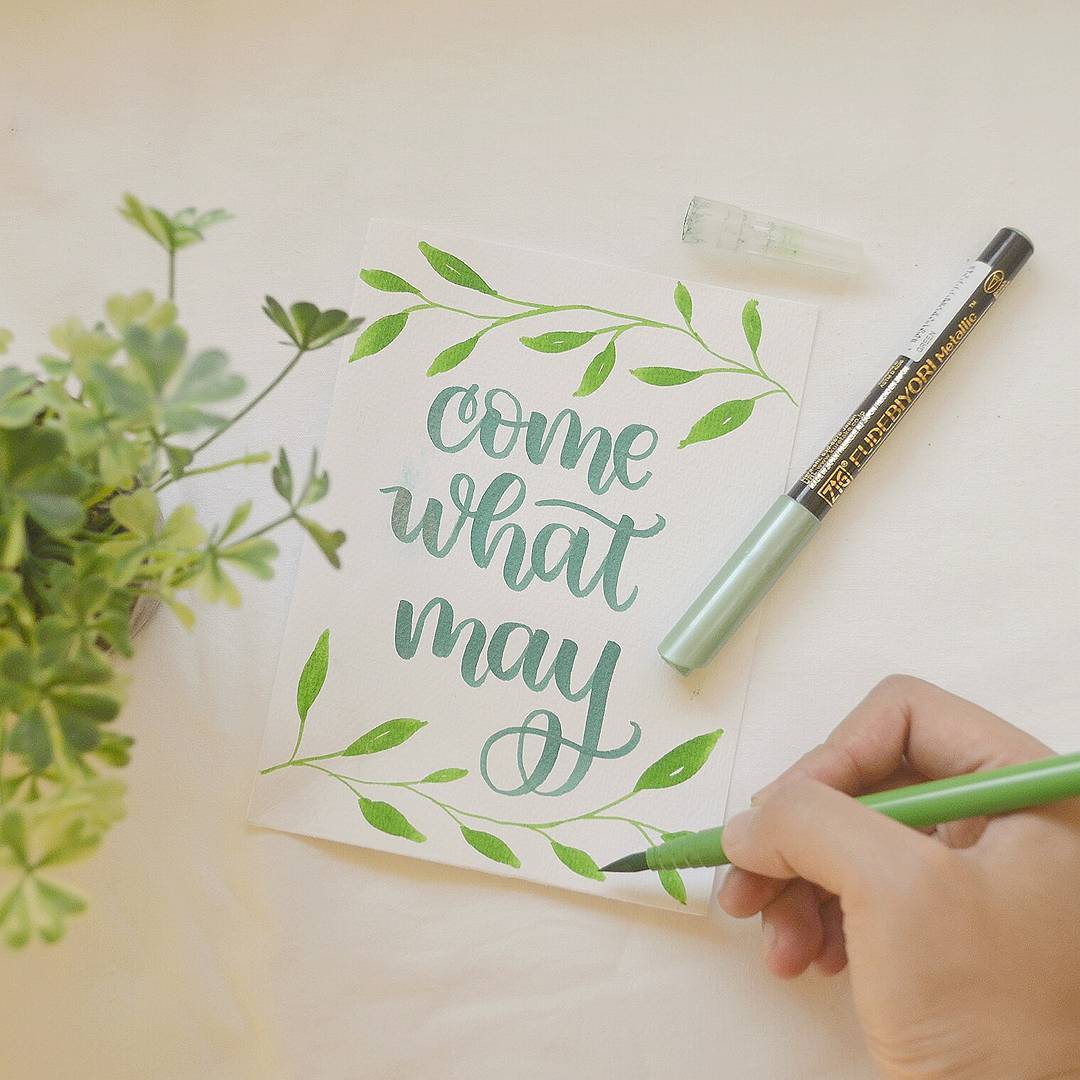 come
what
may
ZIG® FUDEBIYORI Metallic™
GREEN